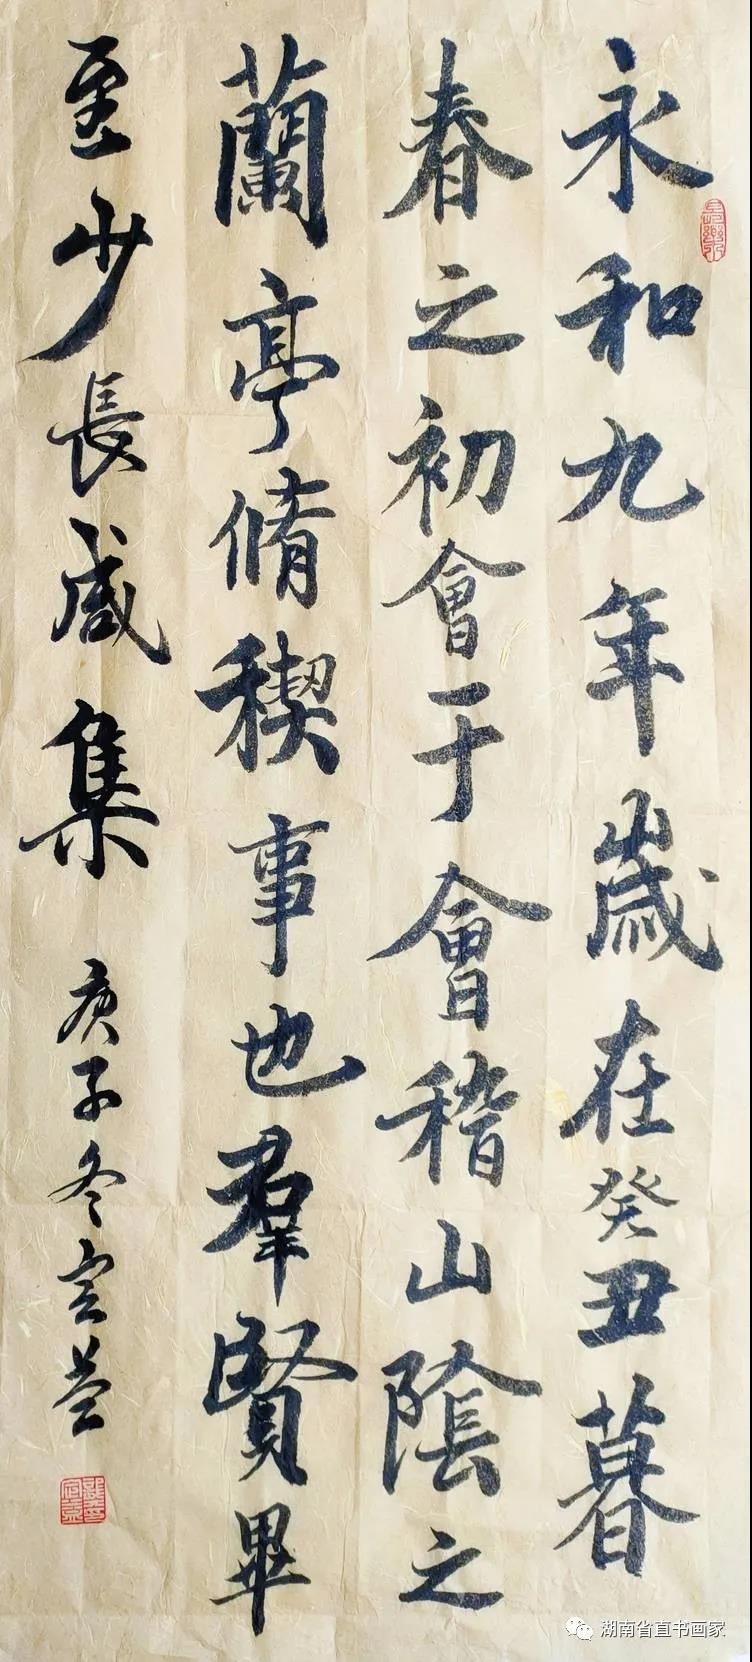 永和九年歲在癸丑暮
春之初會于會稽山陰之
蘭亭脩稧事也羣賢畢
至少長咸集
庚子冬宏益
湖南省直书画家